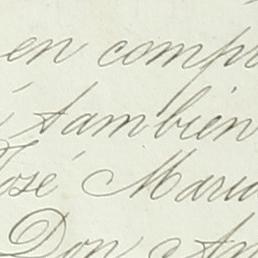 en comp
también
José Maria
Don An